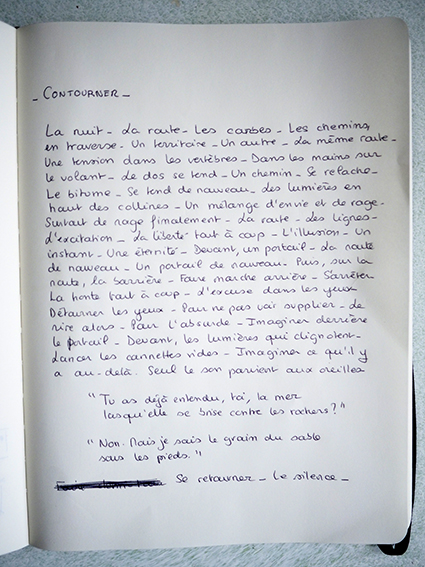 _ CONTOURNER _
La nuit _ La route _ Les courbes _ Les chemins,
en traverse _ Un territoire _ Un autre _ La même route _
Une tension dans les vertèbres _ Dans les mains sur
le volant _ Le dos se tend _ Un chemin _ Se relache _
Le bitume _ Se tend de nouveau _ Des lumières en
haut des collines _ Un mélange d'envie et de rage _
Surtout de rage finalement _ La route _ Les lignes _
L'excitation _ La liberté tout à coup _ L'illusion _ Un
instant _ Une éternité _ Devant, un portail _ La route
de nouveau _ Un portail de nouveau _ Puis, sur la
route, la barrière _ Faire marche arrière _ S'arrêter
La honte tout à coup _ L'excuse dans les yeux
Détourner les yeux _ Pour ne pas voir supplier _ Le
rire alors _ Pour l'absurde _ Imaginer derrière
le portail _ Devant, les lumières qui clignotent _
Lancer les cannettes vides _ Imaginer ce qu'il y
a au-delà. Seul le son parvient aux oreilles
"Tu as déjà entendu, toi, la mer
lorsqu'elle se brise contre les rochers ?"
"Non. Mais je sais le grain du sable
sous les pieds."
Se retourner _ Le silence _